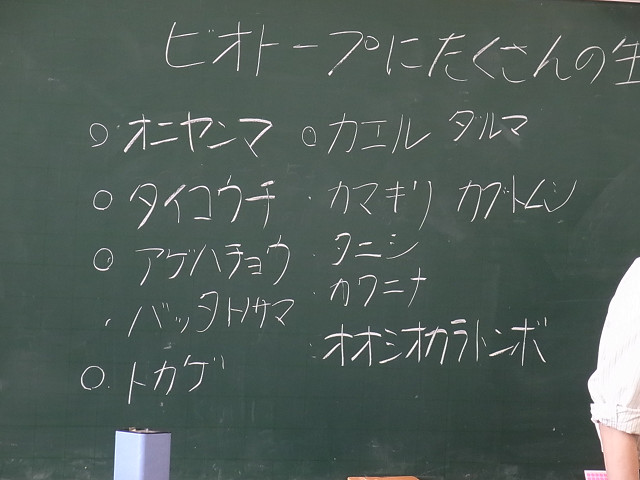 ビオトープにたくさんの生
○ オニヤンマ ○ カエル ダルマ
○ タイコウチ ・カマキリ カブトムシ
○ アゲハチョウ ・タニシ
・バッタトノサマ ・カワニナ
○ トカゲ ・オオシオカラトンボ